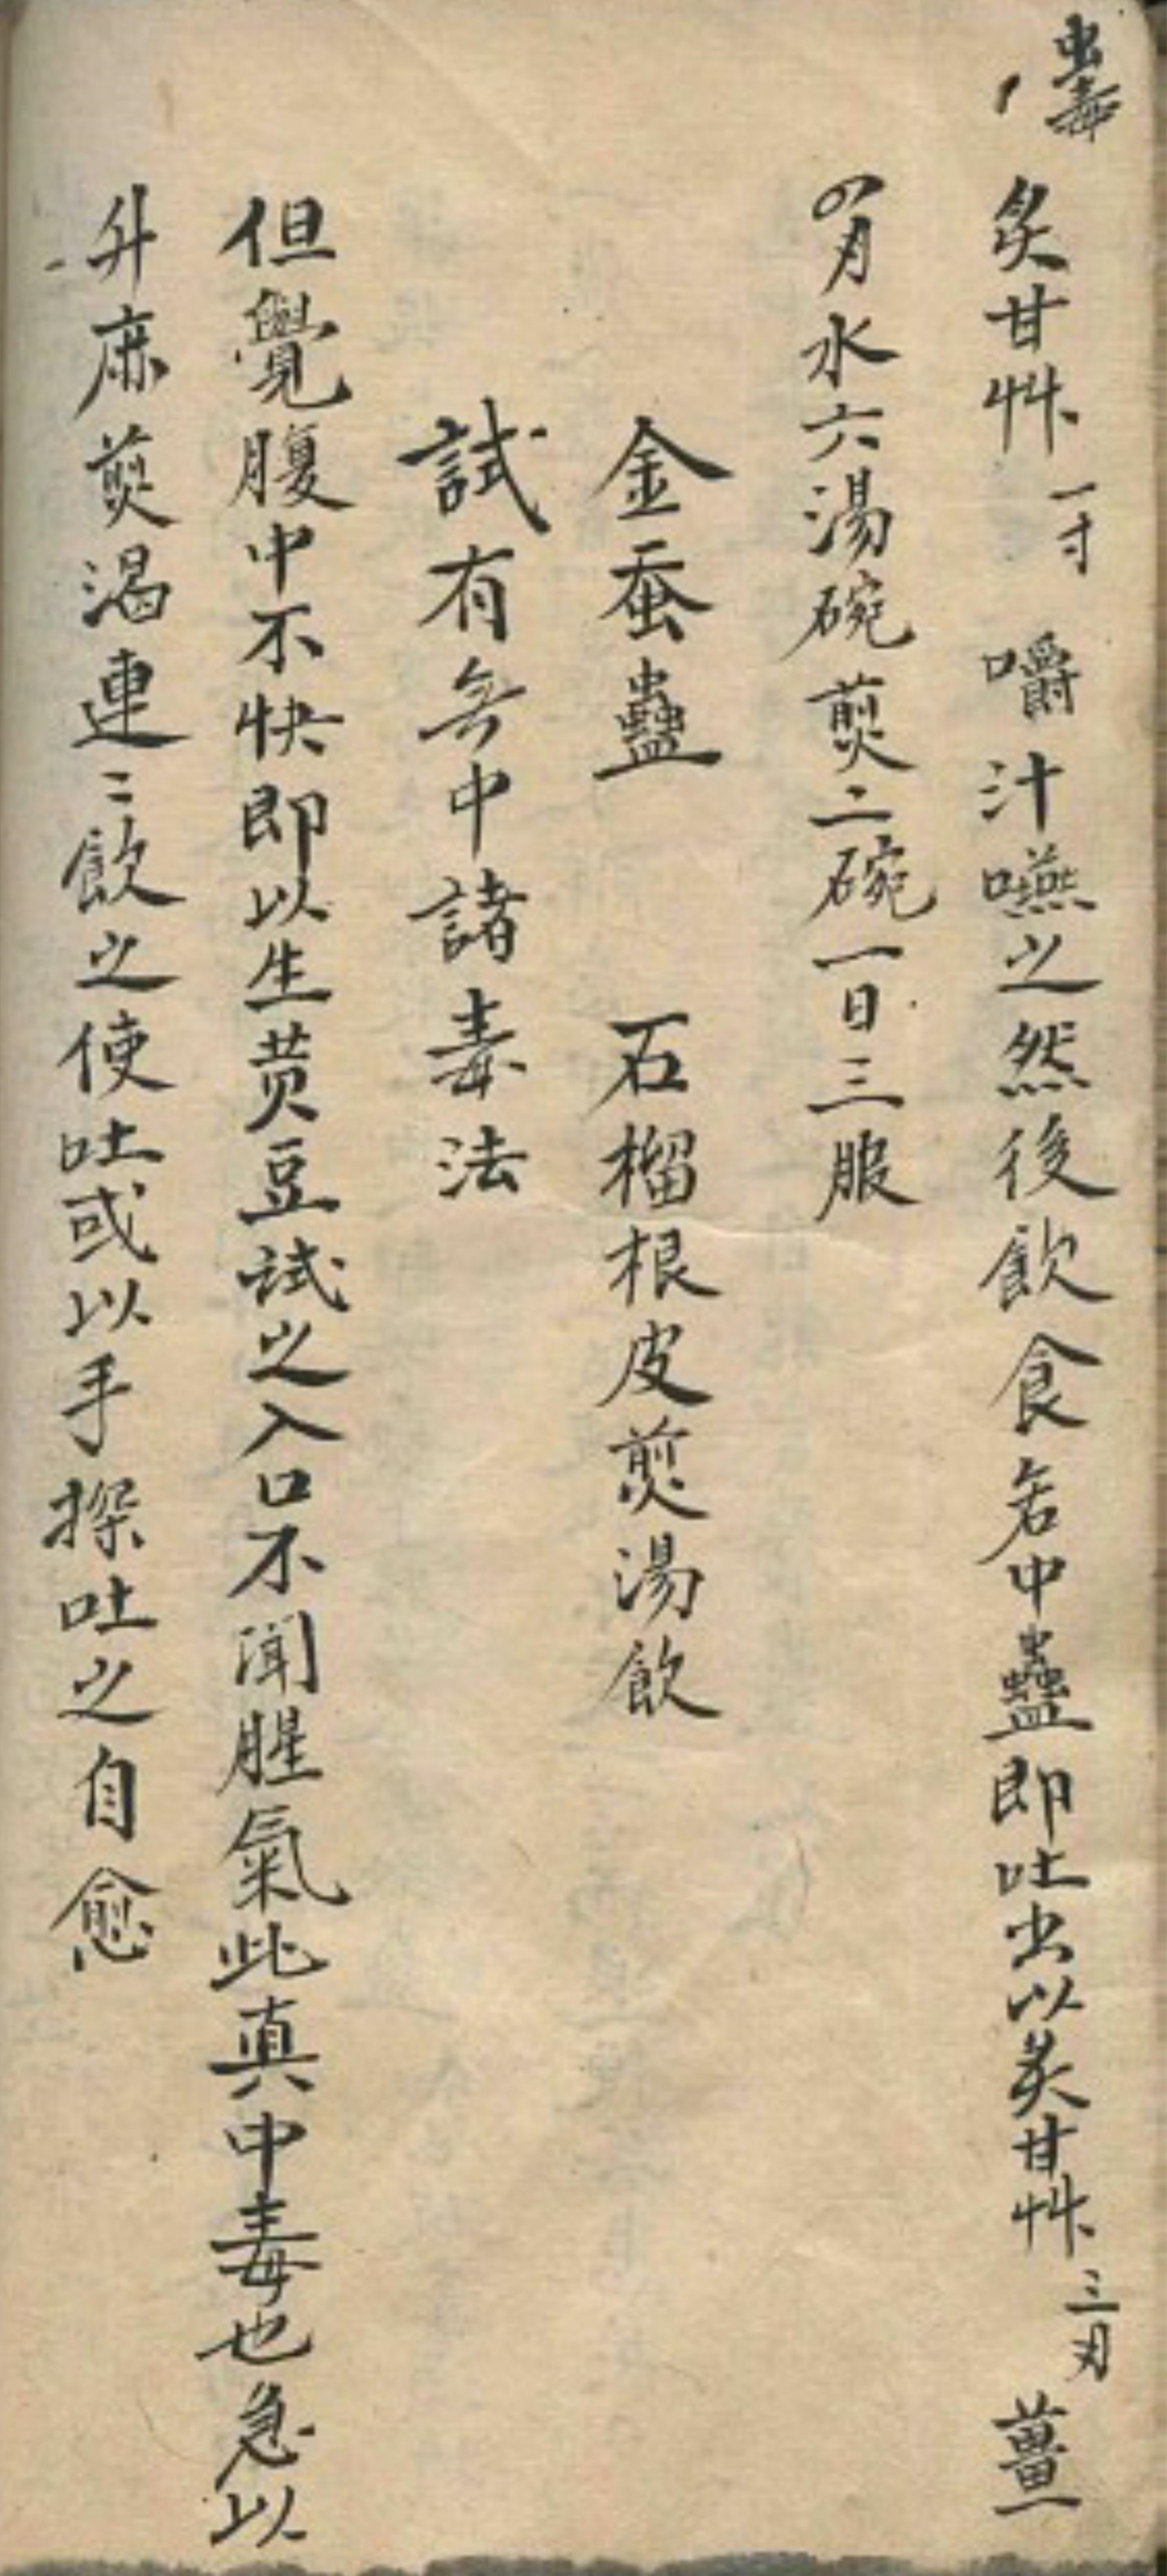 蛊毒
炙甘艸一寸 嚼汁嚥之然後飲食若中蠱即吐出以炙甘艸三刃薑
四刃水六湯碗煎二碗一日三服
金蚕蠱 石榴根皮煎湯飲
試有无中諸毒法
但覺腹中不快即以生黄豆試之入口不聞腥氣此真中毒也急以
升麻煎湯連〻飲之使吐或以手探吐之自愈